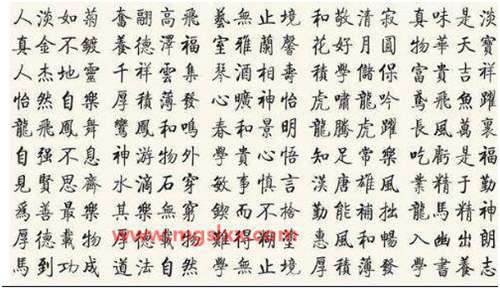 人淡如菊 奮翮高飛 藝無止境 和敬清寂 真味是淡
真金不鍍 養德澤福 室雅蘭馨 花好月圓 物華天寶
人杰地靈 千祥雲集 琴酒相壽 積學儲保 富貴吉祥
怡然自樂 厚積薄發 心曠神怡 虎嘯龍吟 鳶飛魚躍
龍飛鳳舞 鸞鳳和鳴 春和景明 龍騰虎躍 長風萬裏
自强不息 神游物外 學貴心悟 知足常樂 吃虧是福
見賢思齊 水滴石穿 敏事慎言 漢唐雄風 業精于勤
爲善最樂 其樂無窮 而不 勤能補拙 龍馬精神
厚德載物 載物 難得糊塗 惠風和暢 入幽出朗
馬到功成 道法自然 學無止境 厚積薄發 學書養志